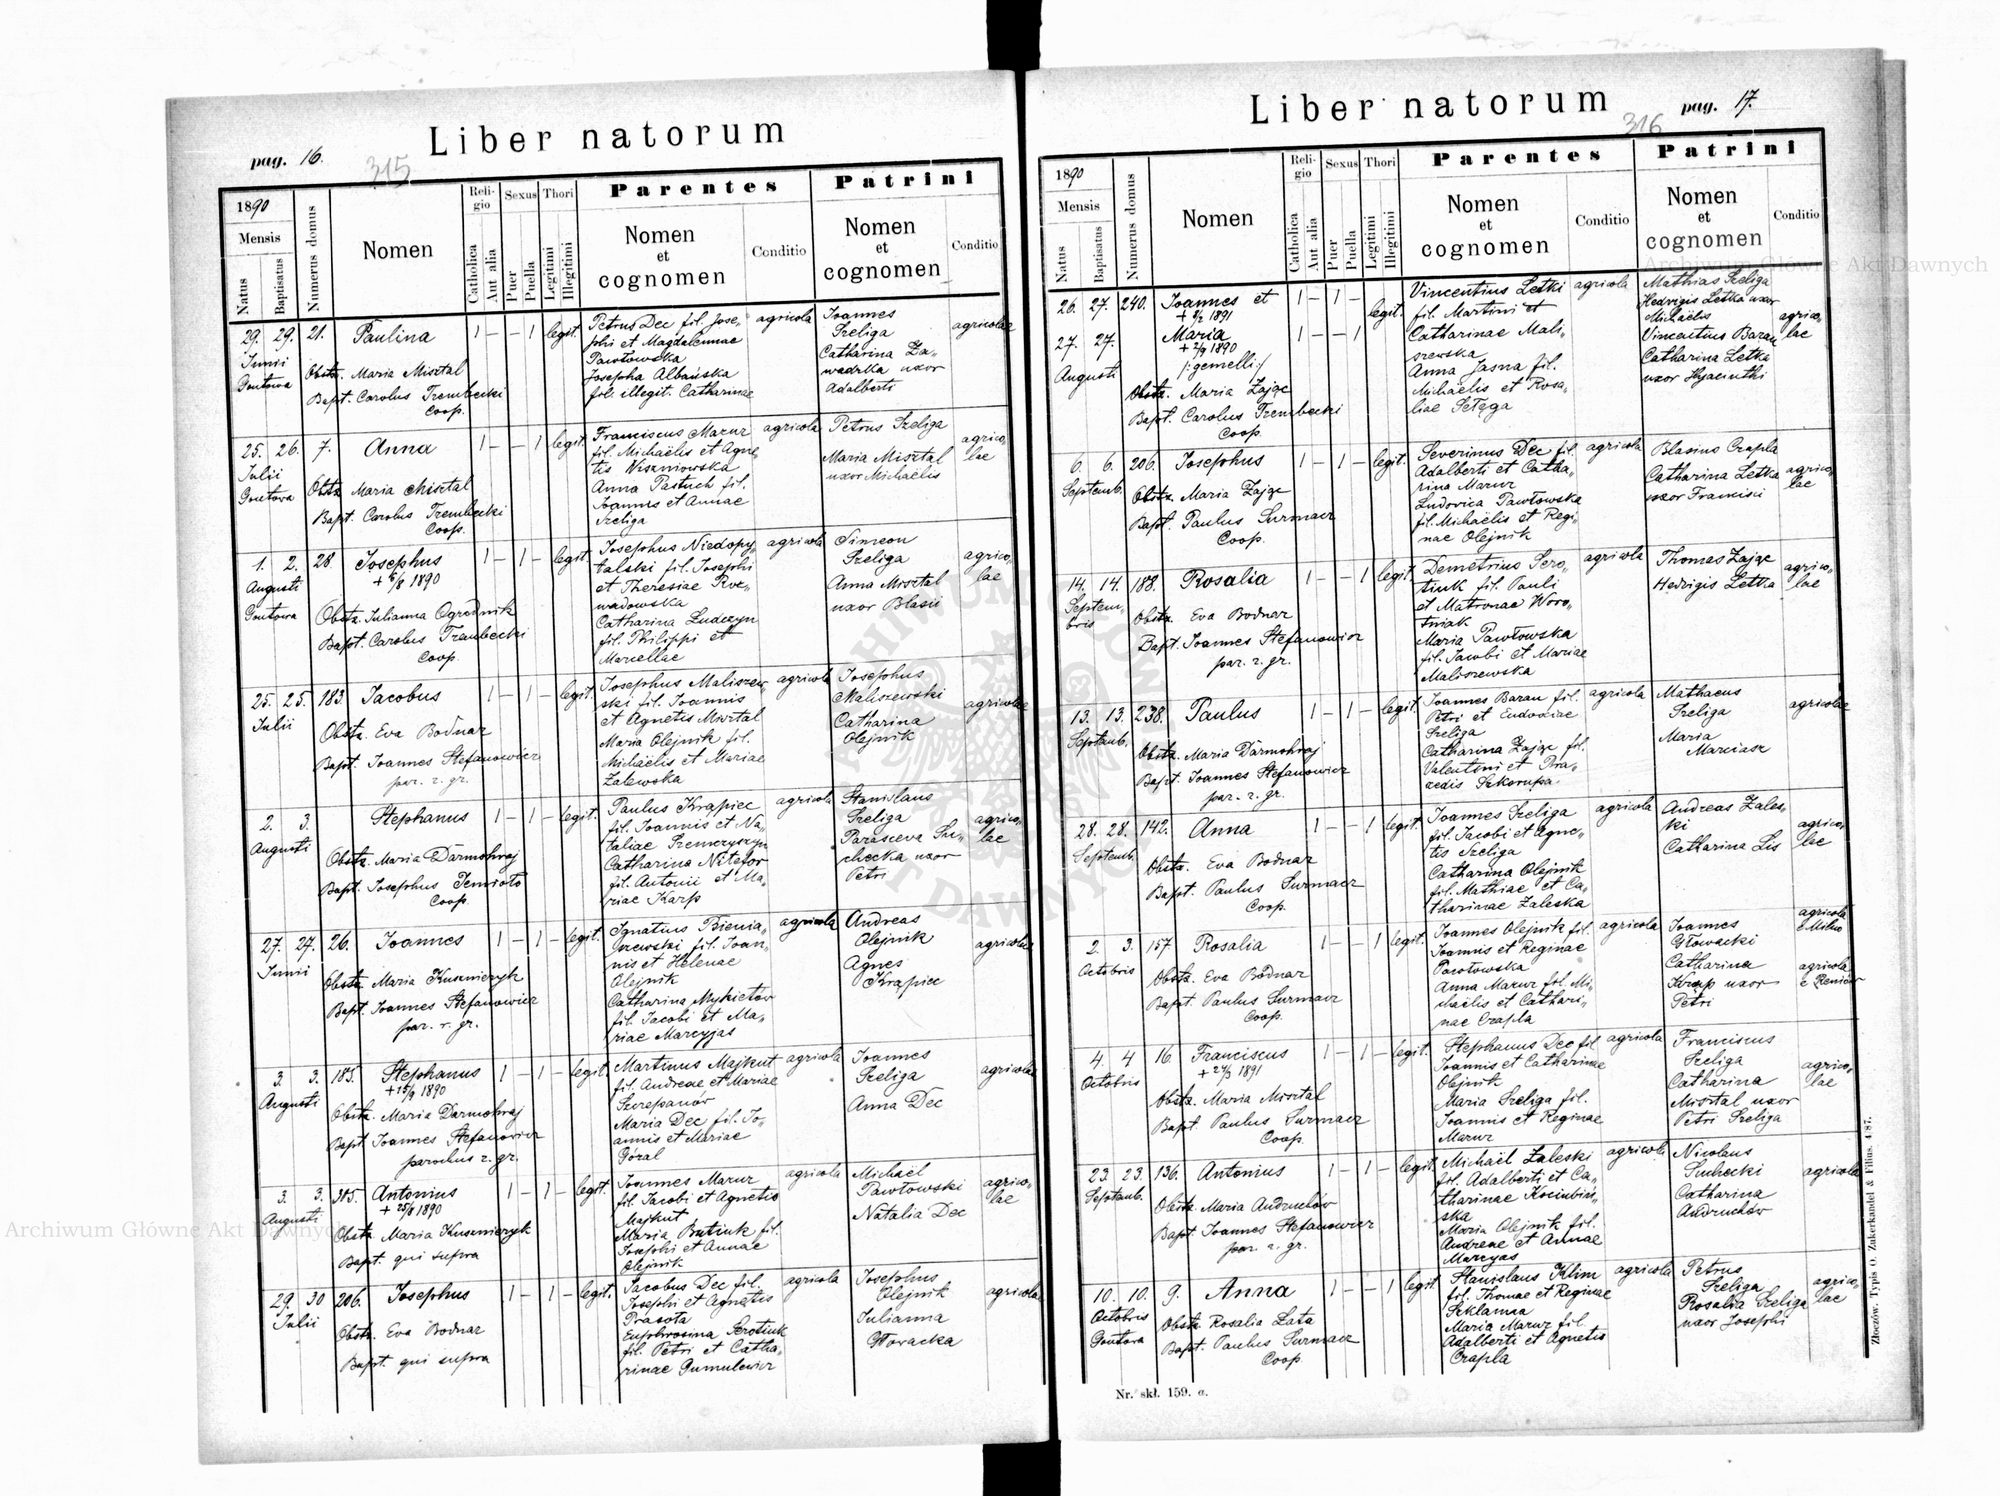 Liber natorum
pag. 16.
315
1890
Mensis
Natus
Baptisatus
Numerus domus
Nomen
Religio
Catholica
Aut alia
Sexus
Puer
Puella
Thori
Legitimi
Illegitimi
Parentes
Nomen
et
cognomen
Conditio
Patrini
Nomen
et
cognomen
Conditio
29. 29. 21. Paulina 1 – – 1 legit. Petrus Dec fil. Jose- agricola Joannes
Junii phi et Magdalenae Szeliga agricolae
Gontowa Pawłowska Catharina Za-
Obstx. Maria Misztal Josepha Albańska wadzka uxor
Bapt. Carolus Trembecki fil. illegit. Catharinae Adalberti
Coop.
25. 26. 7. Anna 1 – – 1 legit. Franciscus Mazur agricola Petrus Szeliga
Julii fil. Michaëlis et Agne- agrico-
Gontowa tis Wiszniowska Maria Misztal lae
Obstx. Maria Misztal Anna Pastuch fil. uxor Michaëlis
Bapt. Carolus Trembecki Joannis et Annae
Coop. Szeliga
1. 2. 28. Josephus 1 – 1 – legit. Josephus Niedopy- agricola Simeon
Augusti + 8/8 1890 talski fil. Josephi Szeliga agrico-
Gontowa et Theresiae Anna Misztal lae
Obstx. Julianna Ogrodnik Catharina uxor Blasii
Bapt. Carolus Trembecki fil. Philippi et
Coop. Marcellae
25. 25. 183. Jacobus 1 – 1 – legit. Josephus Maliszew- agricola Josephus
Julii ski fil. Joannis Maliszewski agricolae
Obstx. Eva Bodnar et Agnetis Misztal Catharina
Bapt. Joannes Stefanowicz Maria Olejnik fil. Olejnik
par. r. gr. Michaëlis et Mariae
Zalewska
2. 3. Stephanus 1 – 1 – legit. Paulus Krąpiec agricola Stanislaus
Augusti fil. Joannis et Na- Szeliga agrico-
Obstx. Maria Darmohraj taliae Parasceva Su- lae
Bapt. Josephus Jemioło Catharina Nitefor checka uxor
Coop. fil. Antonii et Ma- Petri
riae Karp
27. 27. 26. Joannes 1 – 1 – legit. Ignatius agricola Andreas
Junii fil. Joan- Olejnik agricolae
Obstx. Maria Kusznieryk nis et Helenae Agnes
Bapt. Joannes Stefanowicz Olejnik Krąpiec
par. r. gr. Catharina Mykietów
fil. Jacobi et Ma-
riae Marcyjas
3. 3. 185. Stephanus 1 – 1 – legit. Martinus Majkut agricola Joannes
Augusti + 15/9 1890 fil. Andreae et Mariae Szeliga agricolae
Obstx. Maria Darmohraj Szczepanów Anna Dec
Bapt. Joannes Stefanowicz Maria Dec fil. Jo-
parochus r. gr. annis et Mariae
Góral
3. 3. 305. Antonius 1 – 1 – legit. Joannes Mazur agricola Michaël
Augusti + 25/8 1890 fil. Jacobi et Agnetis Pawłowski agrico-
Obstx. Maria Kusznieryk Majkut Natalia Dec lae
Bapt. qui supra Maria Bratiuk fil.
Josephi et Annae
Olejnik
29. 30 206. Josephus 1 – 1 – legit. Jacobus Dec fil. agricola Josephus
Julii Josephi et Agnetis Olejnik agricolae
Obstx. Eva Bodnar Prasota Julianna
Bapt. qui supra Euphrosina Serotiuk Głowacka
fil. Petri et Catha-
rinae Gumulewicz
Liber natorum
pag. 17.
316
1890
Mensis
Natus
Baptisatus
Numerus domus
Nomen
Religio
Catholica
Aut alia
Sexus
Puer
Puella
Thori
Legitimi
Illegitimi
Parentes
Nomen
et
cognomen
Conditio
Patrini
Nomen
et
cognomen
Conditio
26. 27. 240. Joannes et 1 – 1 – legit. Vincentius Letki agricola Mathias Szeliga
+ 4/2 1891 fil. Martini et Hedvigis Letka uxor
27. 27. Maria 1 – – 1 Catharinae Mali- Michaëlis agrico-
Augusti + 2/9 1890 szewska Vincentius Baran lae
/:gemelli:/ Anna Jasna fil. Catharina Letka
Obstx. Maria Zając Michaëlis et Rosa- uxor Hyacinthi
Bapt. Carolus Trembecki liae Sełęga
Coop.
6. 6. 206. Josephus 1 – 1 – legit. Severinus Dec fil. agricola Blasius Czapla
Septemb. Adalberti et Catha- Catharina Letka agrico-
Obstx. Maria Zając rina Mazur uxor Francisci lae
Bapt. Paulus Surmacz Ludovica Pawłowska
Coop. fil. Michaëlis et Regi-
nae Olejnik
14. 14. 188. Rosalia 1 – – 1 legit. Demetrius Sero- agricola Thomas Zając agrico-
Septem- tiuk fil. Pauli Hedvigis Letka lae
bris Obstx. Eva Bodnar et Matronae Woro-
Bapt. Joannes Stefanowicz tniak
par. r. gr. Maria Pawłowska
fil. Jacobi et Mariae
Maliszewska
13. 13. 238. Paulus 1 – 1 – legit. Joannes Baran fil. agricola Mathaeus
Septemb. Petri et Eudoxiae Szeliga agricolae
Obstx. Maria Darmohraj Szeliga Maria
Bapt. Joannes Stefanowicz Catharina Zając fil. Marciasz
par. r. gr. Valentini et Pra-
xedis Szkorupa
28. 28. 142. Anna 1 – – 1 legit. Joannes Szeliga agricola Andreas Zales-
Septemb. fil. Jacobi et Agne- ki agrico-
Obstx. Eva Bodnar tis Szeliga Catharina Lis lae
Bapt. Paulus Surmacz Catharina Olejnik
Coop. fil. Mathiae et Ca-
tharinae Zaleska
2. 3. 157 Rosalia 1 – – 1 legit. Joannes Olejnik fil. agricola Joannes agricola
Octobris Joannis et Reginae Głowacki e Milno
Obstx. Eva Bodnar Pawłowska Catharina agricola
Bapt. Paulus Surmacz Anna Mazur fil. Mi- uxor e Reniów
Coop. chaëlis et Cathari- Petri
nae Czapla
4. 4 16. Franciscus 1 – 1 – legit. Stephanus Dec fil. agricola Franciscus
Octobris + 24/3 1891 Joannis et Catharinae Szeliga agrico-
Obstx. Maria Misztal Olejnik Catharina lae
Bapt. Paulus Surmacz Maria Szeliga fil. Misztal uxor
Coop. Joannis et Reginae Petri Szeliga
Mazur
23. 23. 136. Antonius 1 – 1 – legit. Michaël Zaleski agricola Nicolaus
Septemb. fil. Adalberti et Ca- Suchecki agricolae
Obstx. Maria Andruchów tharinae Kosińbiń- Catharina
Bapt. Joannes Stefanowicz ska Andruchów
par. r. gr. Maria Olejnik fil.
Andreae et Annae
Marcyas
10. 10. 9. Anna 1 – – 1 legit. Stanislaus Klim agricola Petrus
Octobris fil. Thomae et Reginae Szeliga agrico-
Gontowa Obstx. Rosalia Łata Szklanna Rosalia Szeliga lae
Bapt. Paulus Surmacz Maria Mazur fil. uxor Josephi
Coop. Adalberti et Agnetis
Czapla
Nr. skł. 159. a.
Złoczów. Typis O. Zukerkandel & Filius. 4/87.
Archiwum Główne Akt Dawnych
Archiwum Główne Akt Dawnych